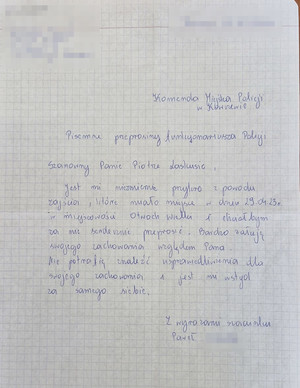 Komenda Miejska Policji
w
Pisemne przeprosiny funkcjonariusza Policji
Szanowny Panie Piotrze
Jest mi niezmiernie przykro z powodu
zajścia, które miało miejsce w dniu 29.04.23r
w miejscowości Otwock Wielki i chciałbym
za nie serdecznie przeprosić. Bardzo żałuję
swojego zachowania względem Pana.
Nie potrafię znaleźć usprawiedliwienia dla
swojego zachowania i jest mi wstyd
za samego siebie.
Z wyrazami szacunku
Paweł